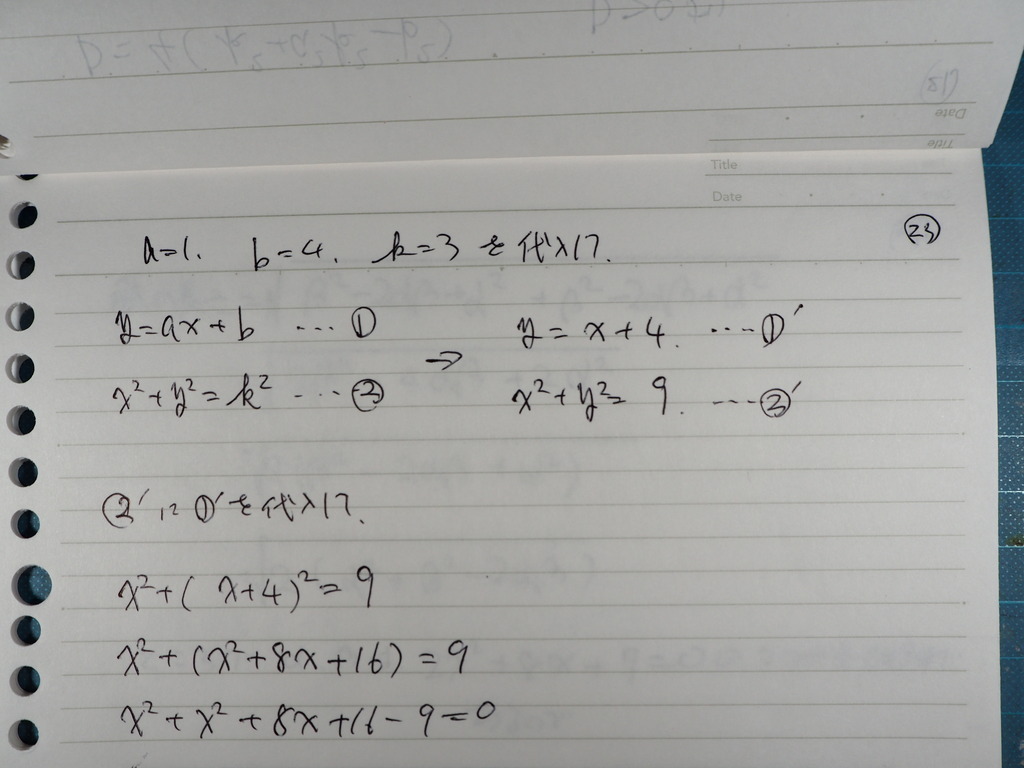 Title
Date
㉓
a=1. b=4. k=3 を代入して.
y=ax+b ‥‥① → y=x+4. ‥‥①′
x²+y²=k² ‥‥② x²+y²=9. ‥‥②′
②′に①′を代入して.
x²+(x+4)²=9
x²+(x²+8x+16)=9
x²+x²+8x+16-9=0